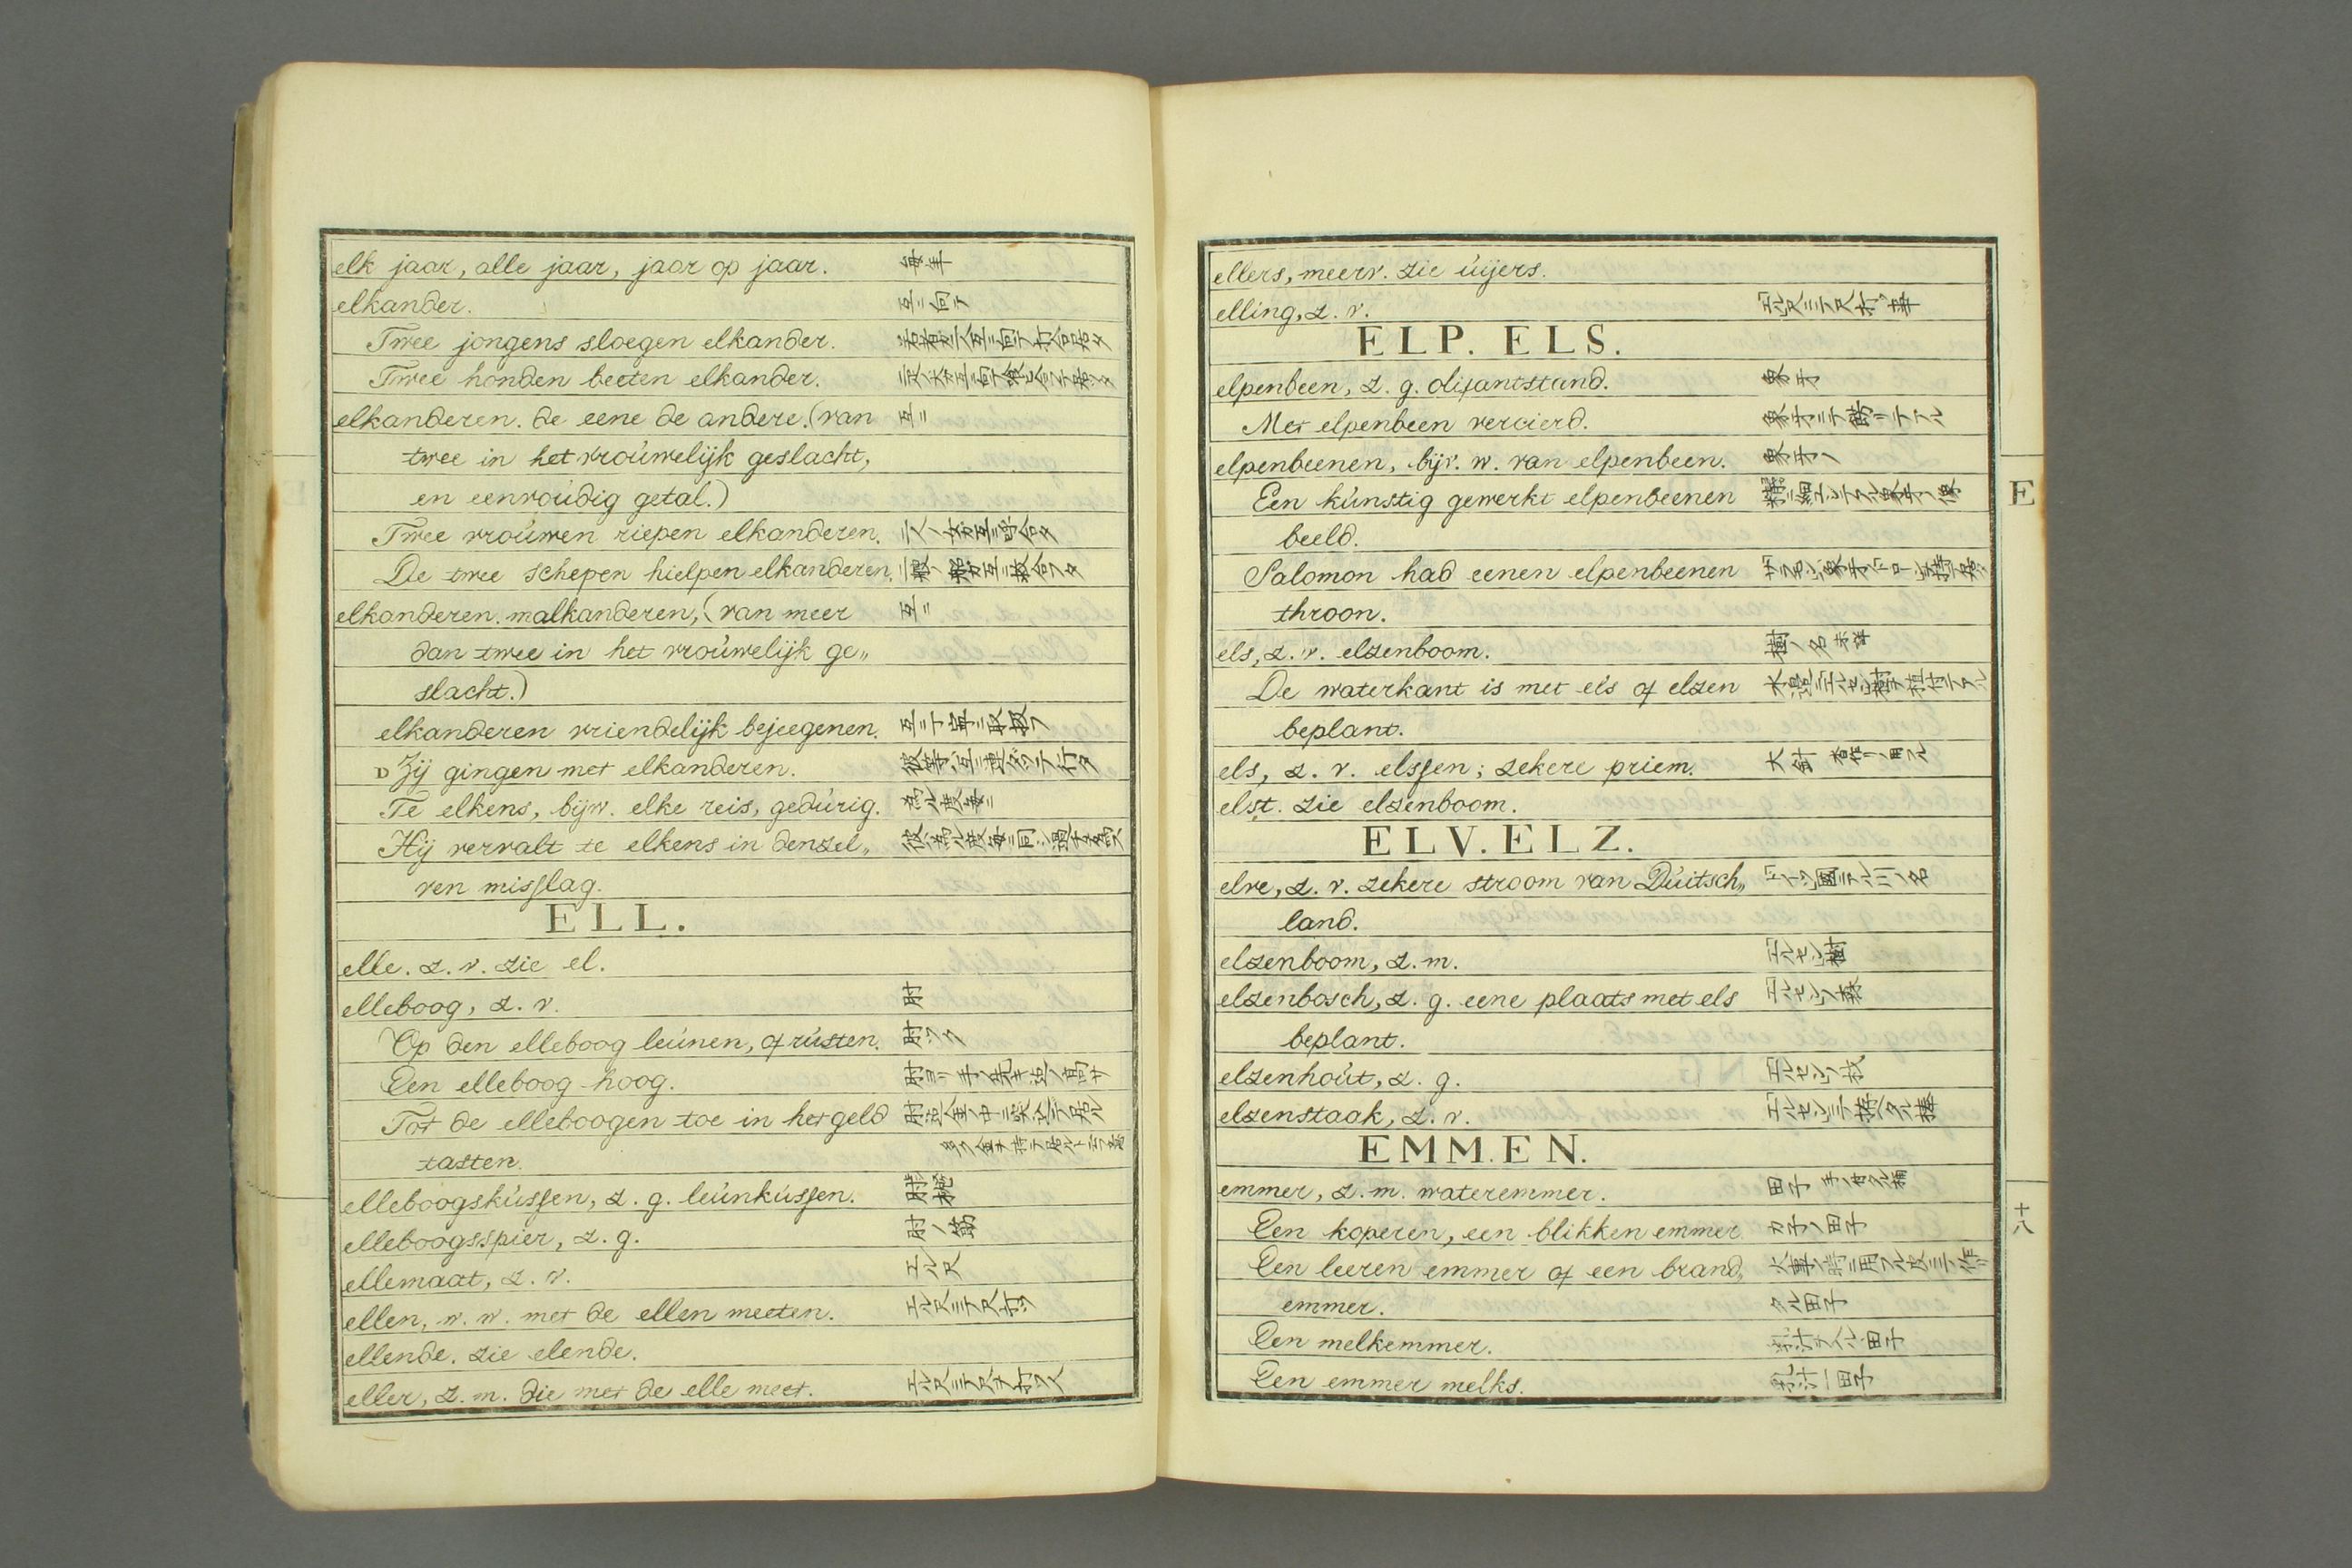 elk jaar, alle jaar, jaar op jaar. 毎年
elkander. 互ニ向テ
Twee jongens sloegen elkander.
Twee honden beeten elkander.
elkanderen. de eene de andere. (van 互ニ
twee in het vroúwelijk geslacht,
en eenvoúdig getal.)
Twee vroúwen riepen elkanderen.
De twee schepen hielpen elkanderen.
elkanderen. malkanderen, (van meer 互ニ
dan twee in het vroúwelijk ge„
slacht.)
elkanderen vriendelijk bejeegenen. 互ニ丁寧ニ取扱フ
D Zij gingen met elkanderen.
Te elkens, bijw. elke reis, gedúrig. 為ル度毎ニ
Hij vervalt te elkens in denzel„
ven misslag.
ELL.
elle. z. v. zie el.
elleboog, z. v. 肘
Op den elleboog leúnen, of rústen. 肘ツク
Een elleboog hoog. 肘ヨリ手ノ先キ迄ノ高サ
Tot de elleboogen toe in het geld
tasten.
elleboogskússen, z. g. leúnkússen.
elleboogsspier, z. g. 肘ノ筋
ellemaat, z. v. エル尺
ellen, w. w. met de ellen meeten. エル尺ニテ尺打ツ
ellende. zie elende.
eller, z. m. die met de elle meet. エル尺ニテ尺ヲ打ツ人
ellers, meerv. zie úijers.
elling, z. v. エル尺ニテ尺打ツ事
ELP. ELS.
elpenbeen, z. g. olifantstand. 象牙
Met elpenbeen vercierd. 象牙ニテ餝リテアル
elpenbeenen, bijv. w. van elpenbeen. 象牙ノ
Een kúnstig gewerkt elpenbeenen
beeld.
Salomon had eenen elpenbeenen
throon.
els, z. v. elzenboom. 樹ノ名
De waterkant is met els of elzen
beplant.
els, z. v. elssen; zekere priem. 大針
elst. zie elzenboom.
ELV. ELZ.
elve, z. v. zekere stroom van Dúitsch„ ドイツ國ニテル川ノ名
land.
elzenboom, z. m. エルセン樹
elzenbosch, z. g. eene plaats met els エルセンノ森
beplant.
elzenhoút, z. g. エルセンノ材
elzenstaak, z. v.
EMM. EN.
emmer, z. m. wateremmer. 田子
Een koperen, een blikken emmer. カネノ田子
Een leeren emmer of een brand„ 火事ノ時ニ用フル皮ニテ作リ
emmer. タル田子
Een melkemmer. 乳汁ヲ入ル田子
Een emmer melks. 乳汁一田子
E
十八